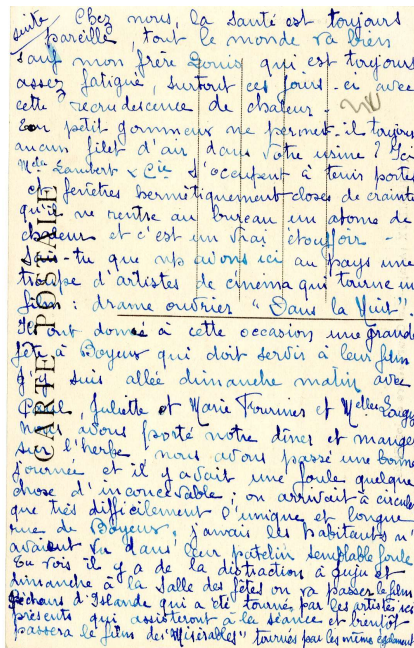 suite
Chez nous, la santé est toujours
pareille, tout le monde va bien
sauf mon frère Louis qui est toujours
assez fatigué, surtout ces jours-ci avec
cette recrudescence de chaleur -
Ton petit gommeux ne permet-il toujours
aucun filet d'air dans votre usine ? Ici
Mr Lambert & Cie s'occupent à tenir portes
et fenêtres hermétiquement closes de crainte
qu'il ne rentre au bureau un atome de
chaleur et c'est un vrai étouffoir -
Sais-tu que ns avons ici au pays une
troupe d'artistes de cinéma qui tourne un
film : drame ouvrier "Dans la Nuit".
Ils ont donné à cette occasion une grande
fête à Boyeux qui doit servir à leur film
J'y suis allée dimanche matin avec
Juliette et Marie Fournier et Melles
nous avons porté notre dîner et mangé
sur l'herbe nous avons passé une bonne
journée et il y avait une foule quelque
chose d'inconcevable ; on arrivait à circuler
que très difficilement l'unique et longue
rue de Boyeux, jamais les habitants n'
avaient vu dans leur patelin semblable foule
Tu vois il y a de la distraction à Juju et
dimanche à la Salle des fêtes on va passer le film
Pêcheurs d'Islande qui a été tourné par les artistes ici
présents qui assisteront à la séance et bientôt
passera le film des "Misérables" tournés par les même également
CARTE POSTALE